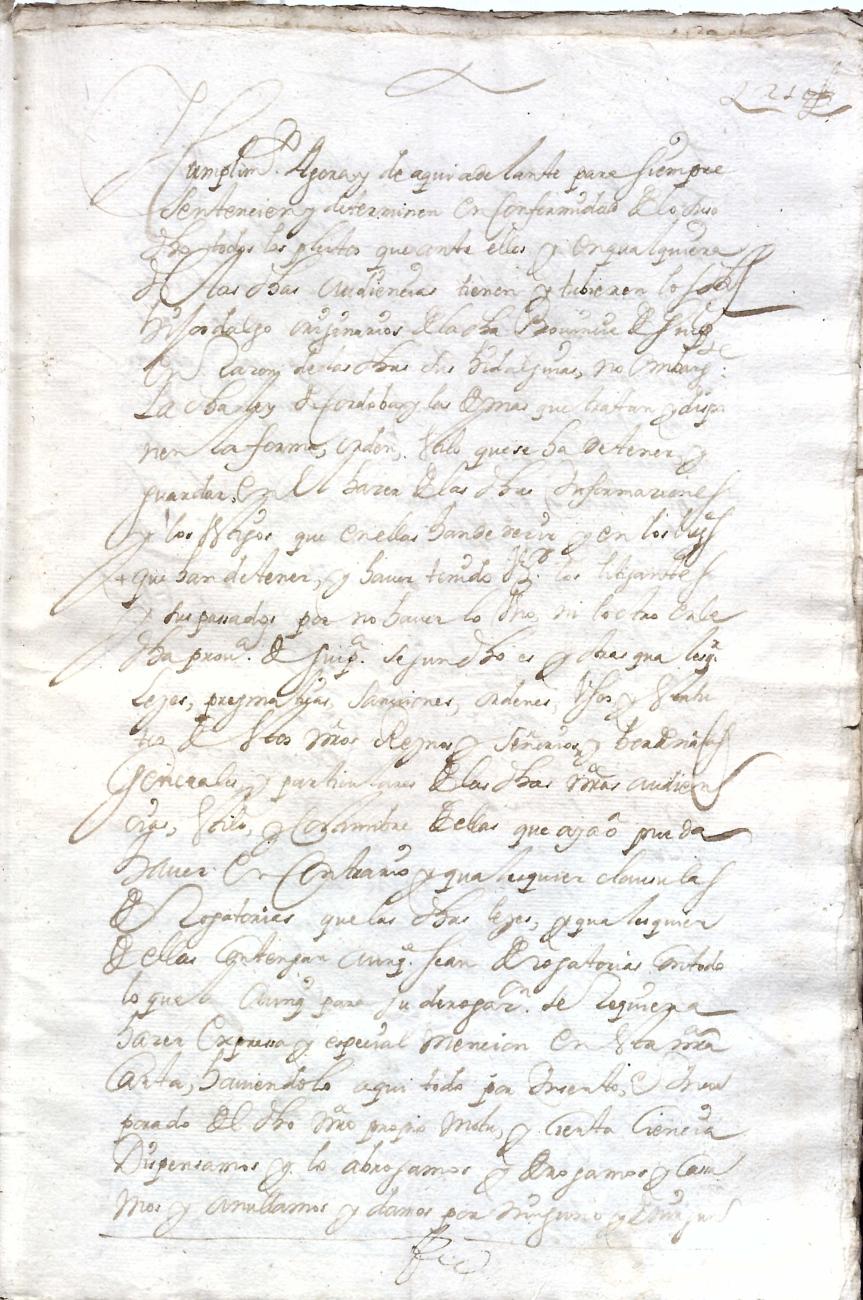 Cumplim.to Agora y de aqui adelante para siempre
Sentencien y determinen en conformidad de lo suso
dho todos los pleitos que ante ellos y en qualquiera
de las dhas audiencias tienen y tubieren los dhos
hijosdalgo originarios de la dha Provincia de Guip.
en razon de las dhas sus hidalguias, no embarg.te
la dha ley de Cordoba y las demas que tratan y dispo
nen la forma, orden, y estilo que se ha de tener y
guardar, en el hazer de las dhas Informaziones
y los testigos que en ellas han de
que han de tener, y haver tenido los litigantes
y sus passados por no haver lo uno, ni lo otro en la
dha prov.a de Guip.a segun dho es y otras quales q.r
leyes, pregmaticas, sanciones, ordenes, usos y estatu
tos de estos nros Reynos y señorios y hordenanzas
Generales y particulares de las dhas nras audien
cias, estilo, y costumbre dellas que aya o pueda
haver en contrario y qualesquier clausulas
derogatorias que las dhas leyes, y qualesquier
dellas contengan aunq. sean derogatorias en todo
lo que aunq. para su derogac.on se requiera
hazer expressa y especial mencion en esta nra
Carta, haviendolo aqui todo por inserto, e incor
porado del dho nro propio motu, y cierta ciencia
Dispensamos y lo abrogamos y derogamos y casa
mos y anullamos y damos por ninguno y